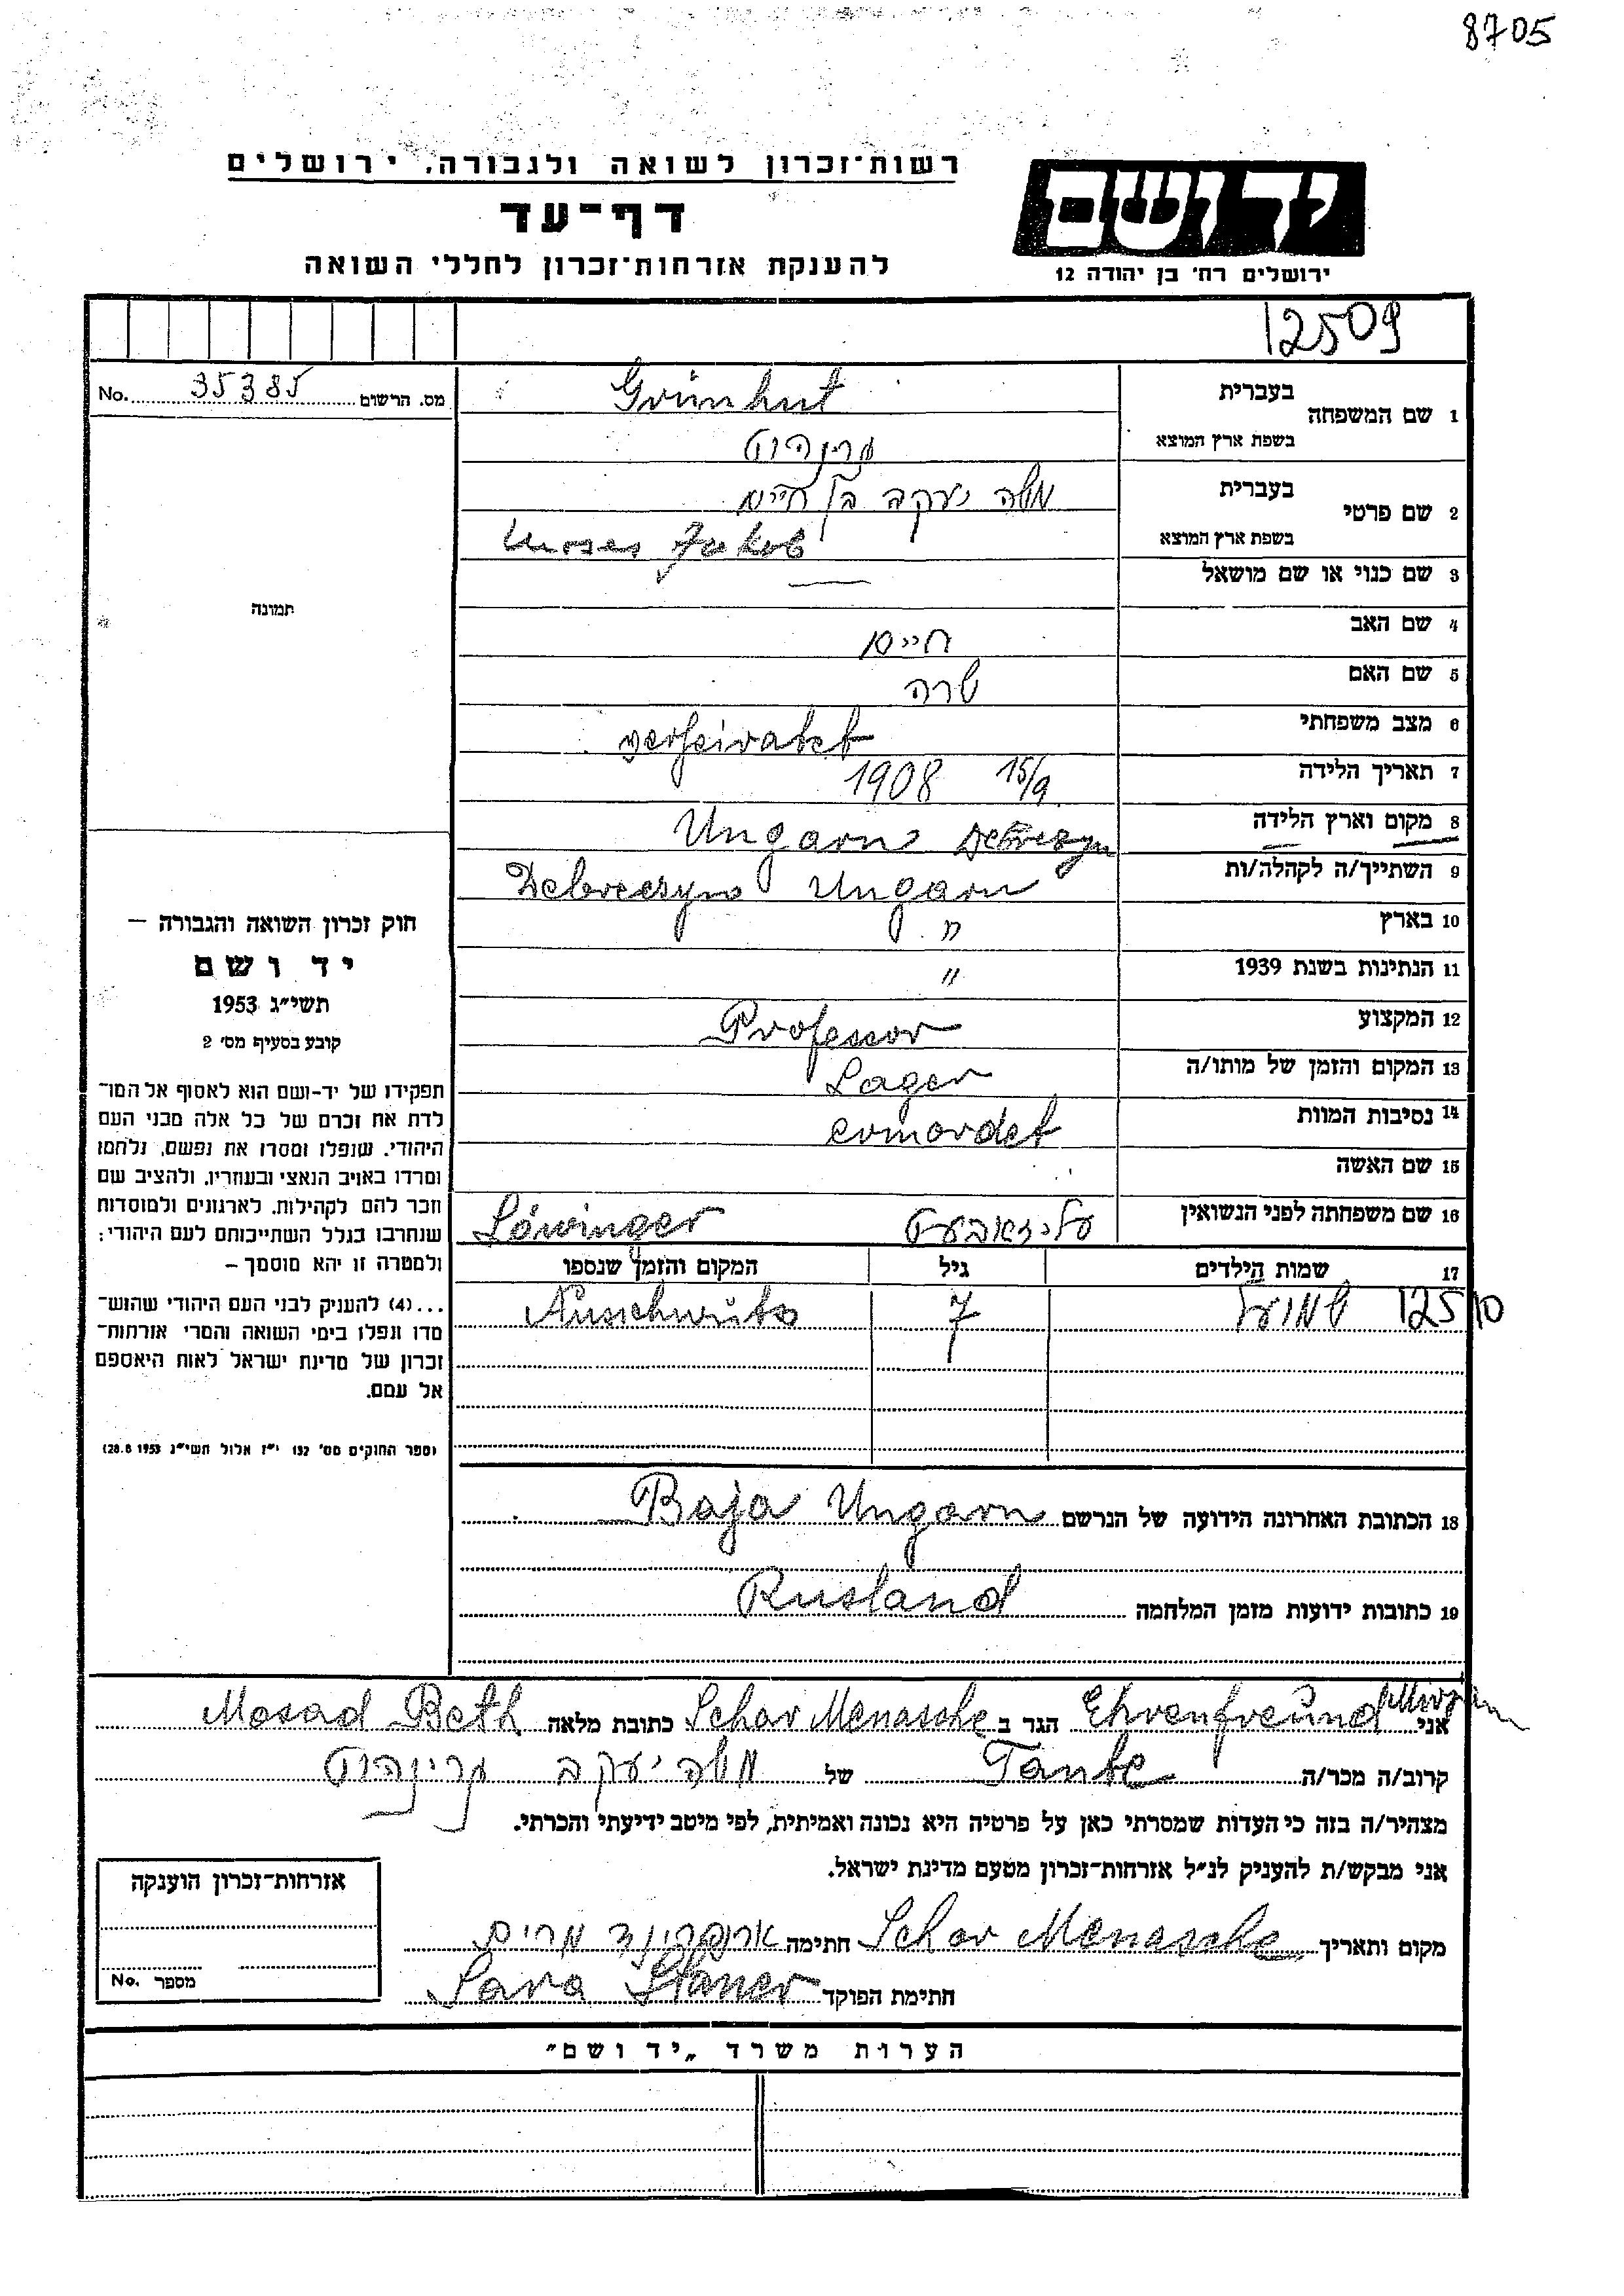 8705
רשות־זכרון לשואה ולגבורה, ירושלים
דף־עד
להענקת אזרחות־זכרון לחללי השואה
יד ושם
ירושלים רח' בן יהודה 12
12509
No. 35385 מס. הרשום
תמונה
1 שם המשפחה בעברית Grünhut
בשפת ארץ המוצא גרינהוט
2 שם פרטי בעברית משה יעקב בן חיים
בשפת ארץ המוצא Moses Jakob
3 שם כנוי או שם מושאל —
4 שם האב חיים
5 שם האם שרה
6 מצב משפחתי verheiratet
7 תאריך הלידה 15/9 1908
8 מקום וארץ הלידה Ungarn Debreczyn
9 השתייך/ה לקהלה/ות Debreczyn Ungarn
10 בארץ "
11 הנתינות בשנת 1939 "
12 המקצוע Professor
13 המקום והזמן של מותו/ה Lager
14 נסיבות המוות ermordet
15 שם האשה
16 שם משפחתה לפני הנשואין עליזאבעט Löwinger
17 שמות הילדים גיל המקום והזמן שנספו
12510 שמועל 7 Auschwitz
18 הכתובת האחרונה הידועה של הנרשם Baja Ungarn
19 כתובות ידועות מזמן המלחמה Rusland
חוק זכרון השואה והגבורה —
יד ושם
תשי"ג 1953
קובע בסעיף מס' 2
תפקידו של יד-ושם הוא לאסוף אל המו־
לדת את זכרם של כל אלה מבני העם
היהודי, שנפלו ומסרו את נפשם, נלחמו
ומרדו באויב הנאצי ובעוזריו, ולהציב שם
וזכר להם לקהילות, לארגונים ולמוסדות
שנחרבו בגלל השתייכותם לעם היהודי;
ולמטרה זו יהא מוסמך —
...(4) להעניק לבני העם היהודי שהוש־
מדו ונפלו בימי השואה והמרי אזרחות־
זכרון של מדינת ישראל לאות היאספם
אל עמם.
(ספר החוקים מס' 132 י"ז אלול תשי"ג 28.8.1953)
אני Ehrenfreund הגר ב Schar Menasche כתובת מלאה Mosad Beth
קרוב/ה מכר/ה Tante של משה יעקב גרינהוט
מצהיר/ה בזה כי העדות שמסרתי כאן על פרטיה היא נכונה ואמיתית, לפי מיטב ידיעתי והכרתי.
אני מבקש/ת להעניק לנ"ל אזרחות־זכרון מטעם מדינת ישראל.
מקום ותאריך Schar Menasche חתימה ארנפרינד מרים
חתימת הפוקד Sara
אזרחות־זכרון הוענקה
מספר No.
הערות משרד „יד ושם"